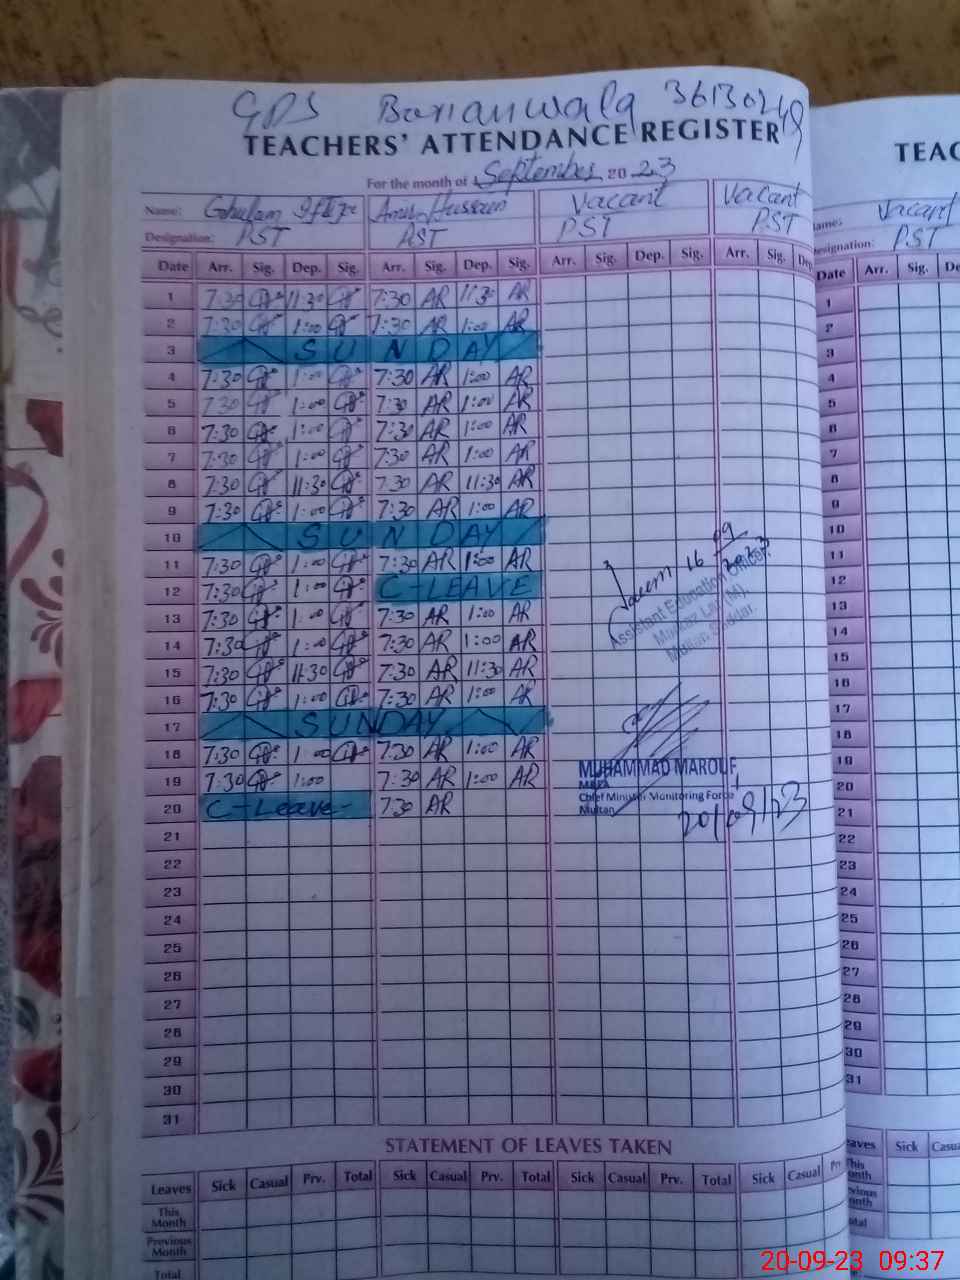 GPS Barianwala 36130249
TEACHERS' ATTENDANCE REGISTER
For the month of September 2023
Name: Ghulam Vacant Vacant
Designation: PST PST PST PST
Date Arr. Sig. Dep. Sig. Arr. Sig. Dep. Sig. Arr. Sig. Dep. Sig. Arr. Sig. Dep
1 7:30 11:30 7:30 AR 11:30 AR
2 7:30 1:00 7:30 AR 1:00 AR
3 SUNDAY
4 7:30 1:00 7:30 AR 1:00 AR
5 7:30 1:00 7:30 AR 1:00 AR
6 7:30 1:00 7:30 AR 1:00 AR
7 7:30 1:00 7:30 AR 1:00 AR
8 7:30 11:30 7:30 AR 11:30 AR
9 7:30 1:00 7:30 AR 1:00 AR
10 SUNDAY
11 7:30 1:00 7:30 AR 1:00 AR
12 7:30 1:00 C-LEAVE
13 7:30 1:00 7:30 AR 1:00 AR
14 7:30 1:00 7:30 AR 1:00 AR
15 7:30 11:30 7:30 AR 11:30 AR
16 7:30 1:00 7:30 AR 1:00 AR
17 SUNDAY
18 7:30 1:00 7:30 AR 1:00 AR
19 7:30 1:00 7:30 AR 1:00 AR
20 C-Leave 7:30 AR
21
22
23
24
25
26
27
28
29
30
31
16 09 2023
Assistant Education Officer
Multan Saddar.
MUHAMMAD MAROUF
MEA
Chief Minister Monitoring Force
Multan
20/09/23
STATEMENT OF LEAVES TAKEN
Leaves Sick Casual Prv. Total Sick Casual Prv. Total Sick Casual Prv. Total Sick Casual
This Month
Previous Month
Total
TEAC
Vacant
PST
Date Arr. Sig. De
1
2
3
4
5
6
7
8
9
10
11
12
13
14
15
16
17
18
19
20
21
22
23
24
25
26
27
28
29
30
31
Sick Casu
20-09-23 09:37